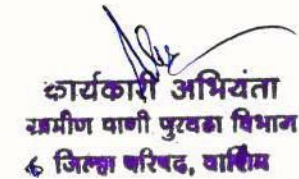 कार्यकारी अभियंता
ग्रामीण पाणी पुरवठा विभाग
जिल्हा परिषद, वाशिम